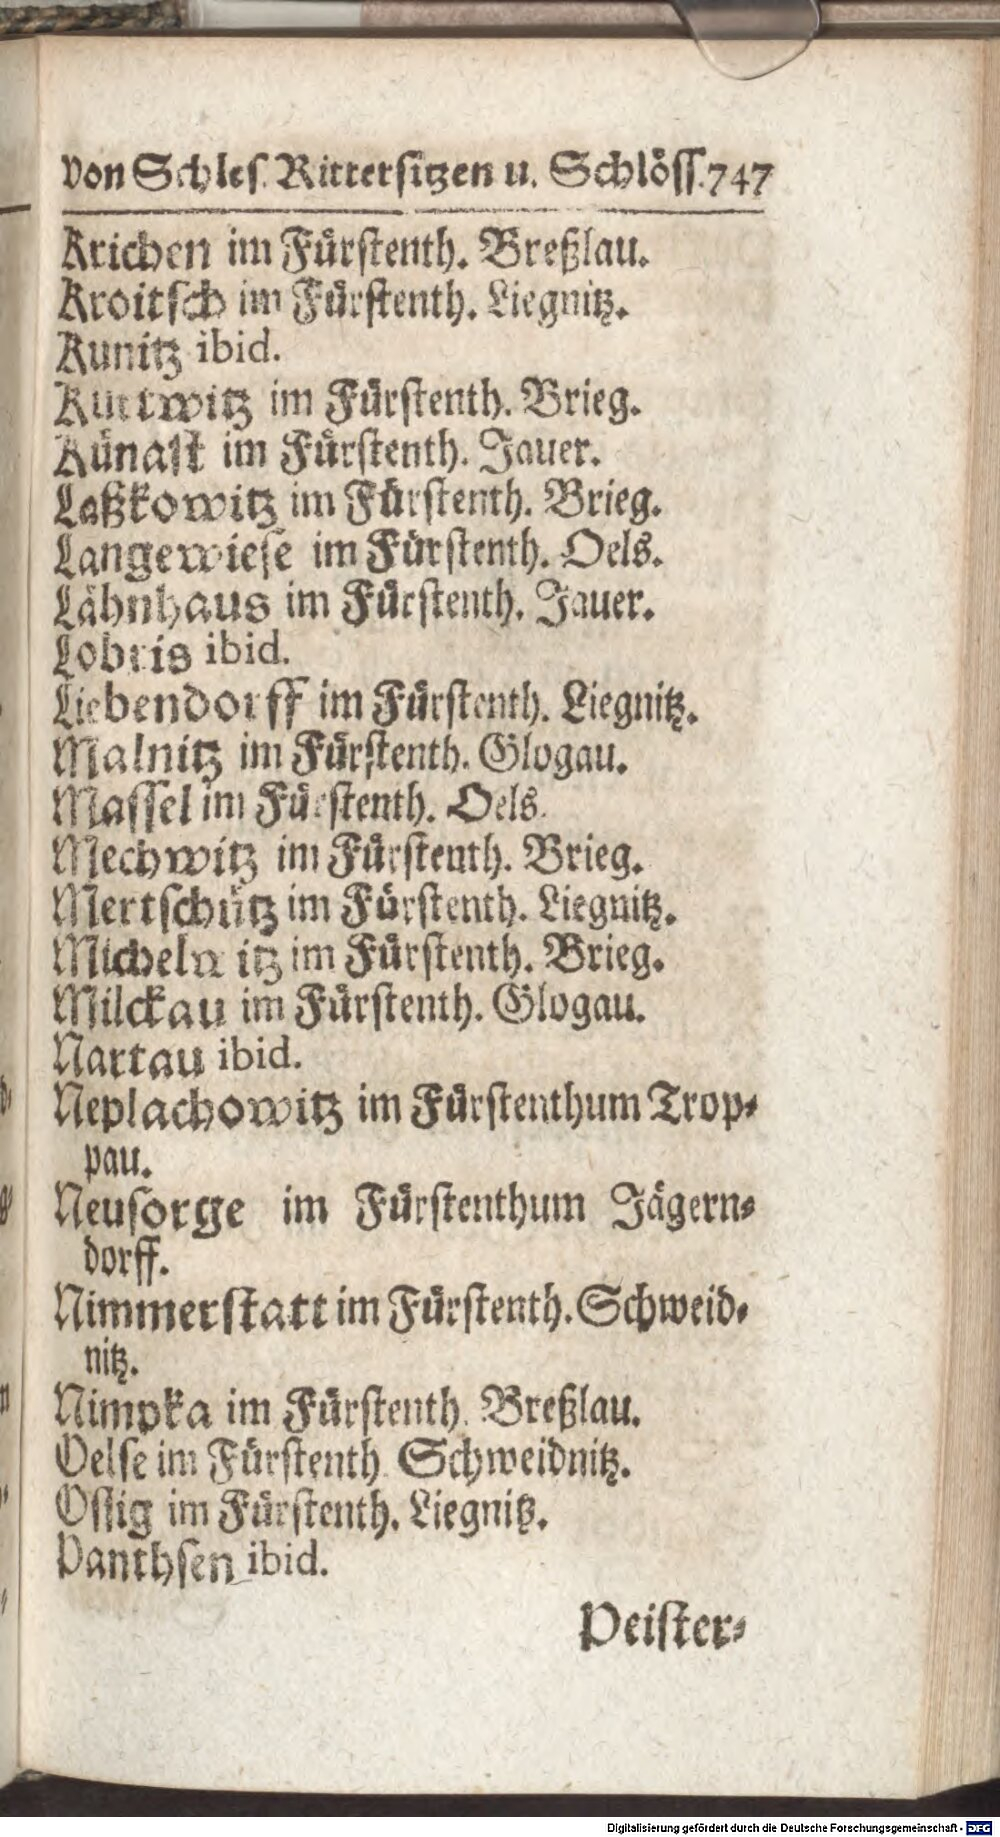 von Schles. Rittersitzen u. Schlöss. 747
Krichen im Fürstenth. Breßlau.
Kroitsch im Fürstenth. Liegnitz.
Kunitz ibid.
Kurtwitz im Fürstenth. Brieg.
Künast im Fürstenth. Jauer.
Laßkowitz im Fürstenth. Brieg.
Langewiese im Fürstenth. Oels.
Lähnhaus im Fürstenth. Jauer.
Lobris ibid.
Liebendorff im Fürstenth. Liegnitz.
Malnitz im Fürstenth. Glogau.
Massel im Fürstenth. Oels.
Mechwitz im Fürstenth. Brieg.
Mertschütz im Fürstenth. Liegnitz.
Michelwitz im Fürstenth. Brieg.
Milckau im Fürstenth. Glogau.
Nartau ibid.
Neplachowitz im Fürstenthum Trop-
pau.
Neusorge im Fürstenthum Jägern-
dorff.
Nimmerstatt im Fürstenth. Schweid-
nitz.
Nimpka im Fürstenth. Breßlau.
Oelse im Fürstenth. Schweidnitz.
Ossig im Fürstenth. Liegnitz.
Panthsen ibid.
Peister-
Digitalisierung gefördert durch die Deutsche Forschungsgemeinschaft - DFG